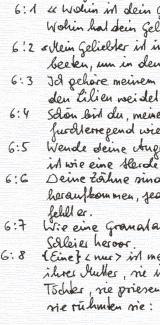 6:1 « Wohin ist dein G
Wohin hat dein Gel
6:2 «Mein Geliebter ist in
beeten, um in den
6:3 Ich gehöre meinem
den Lilien weidet
6:4 Schön bist du, meine
furchterregend wie
6:5 Wende deine Aug
ist wie eine Herde
6:6 Deine Zähne sind
heraufkommen, 
fehlt er.
6:7 Wie eine Granata
Schleier hervor.
6:8 {Eine} < nur > ist me
ihrer Mutter, sie i
Töchter, sie priesen
sie rühmten sie: